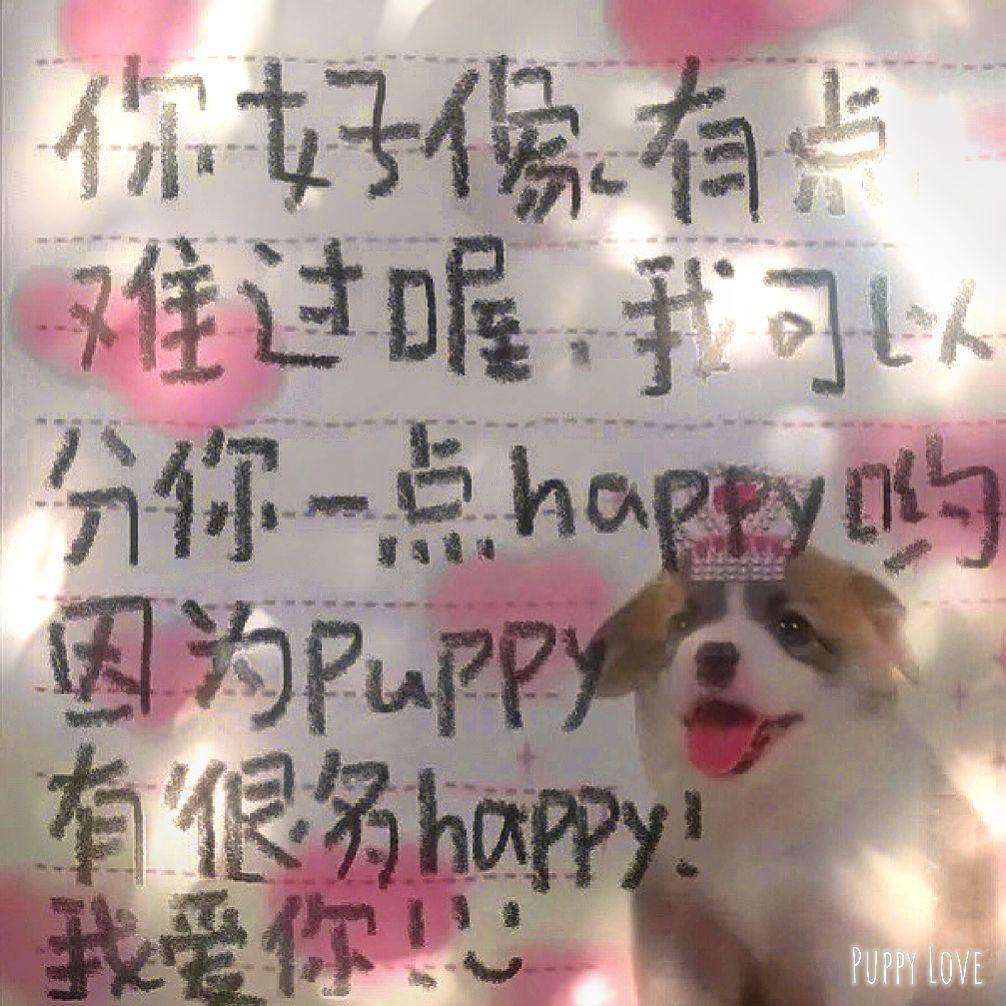 你好像有点
难过喔，我可以
分你一点happy哟
因为puppy
有很多happy!
我爱你!:)
PUPPY LOVE